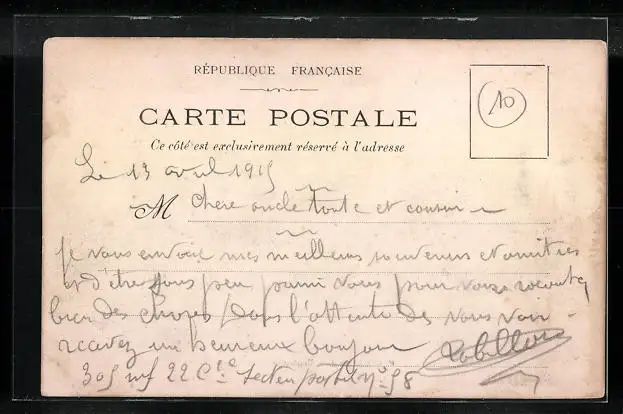 RÉPUBLIQUE FRANÇAISE
10
CARTE POSTALE
Ce côté est exclusivement réservé à l'adresse
Le 13 avril 1915
M Chere oncle tante et cousin
Je vous envoie mes meilleurs souvenirs et amitiés
et d'être sous peu parmi vous pour vous raconter
bien des choses dans l'attente de vous voir
recevez un heureux bonjour
305 inf 22 Cie Secteur postal no 98